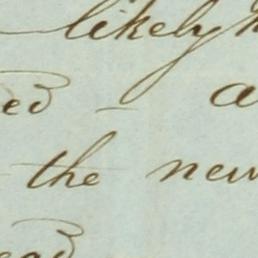 likely
ed - a
the new
ead